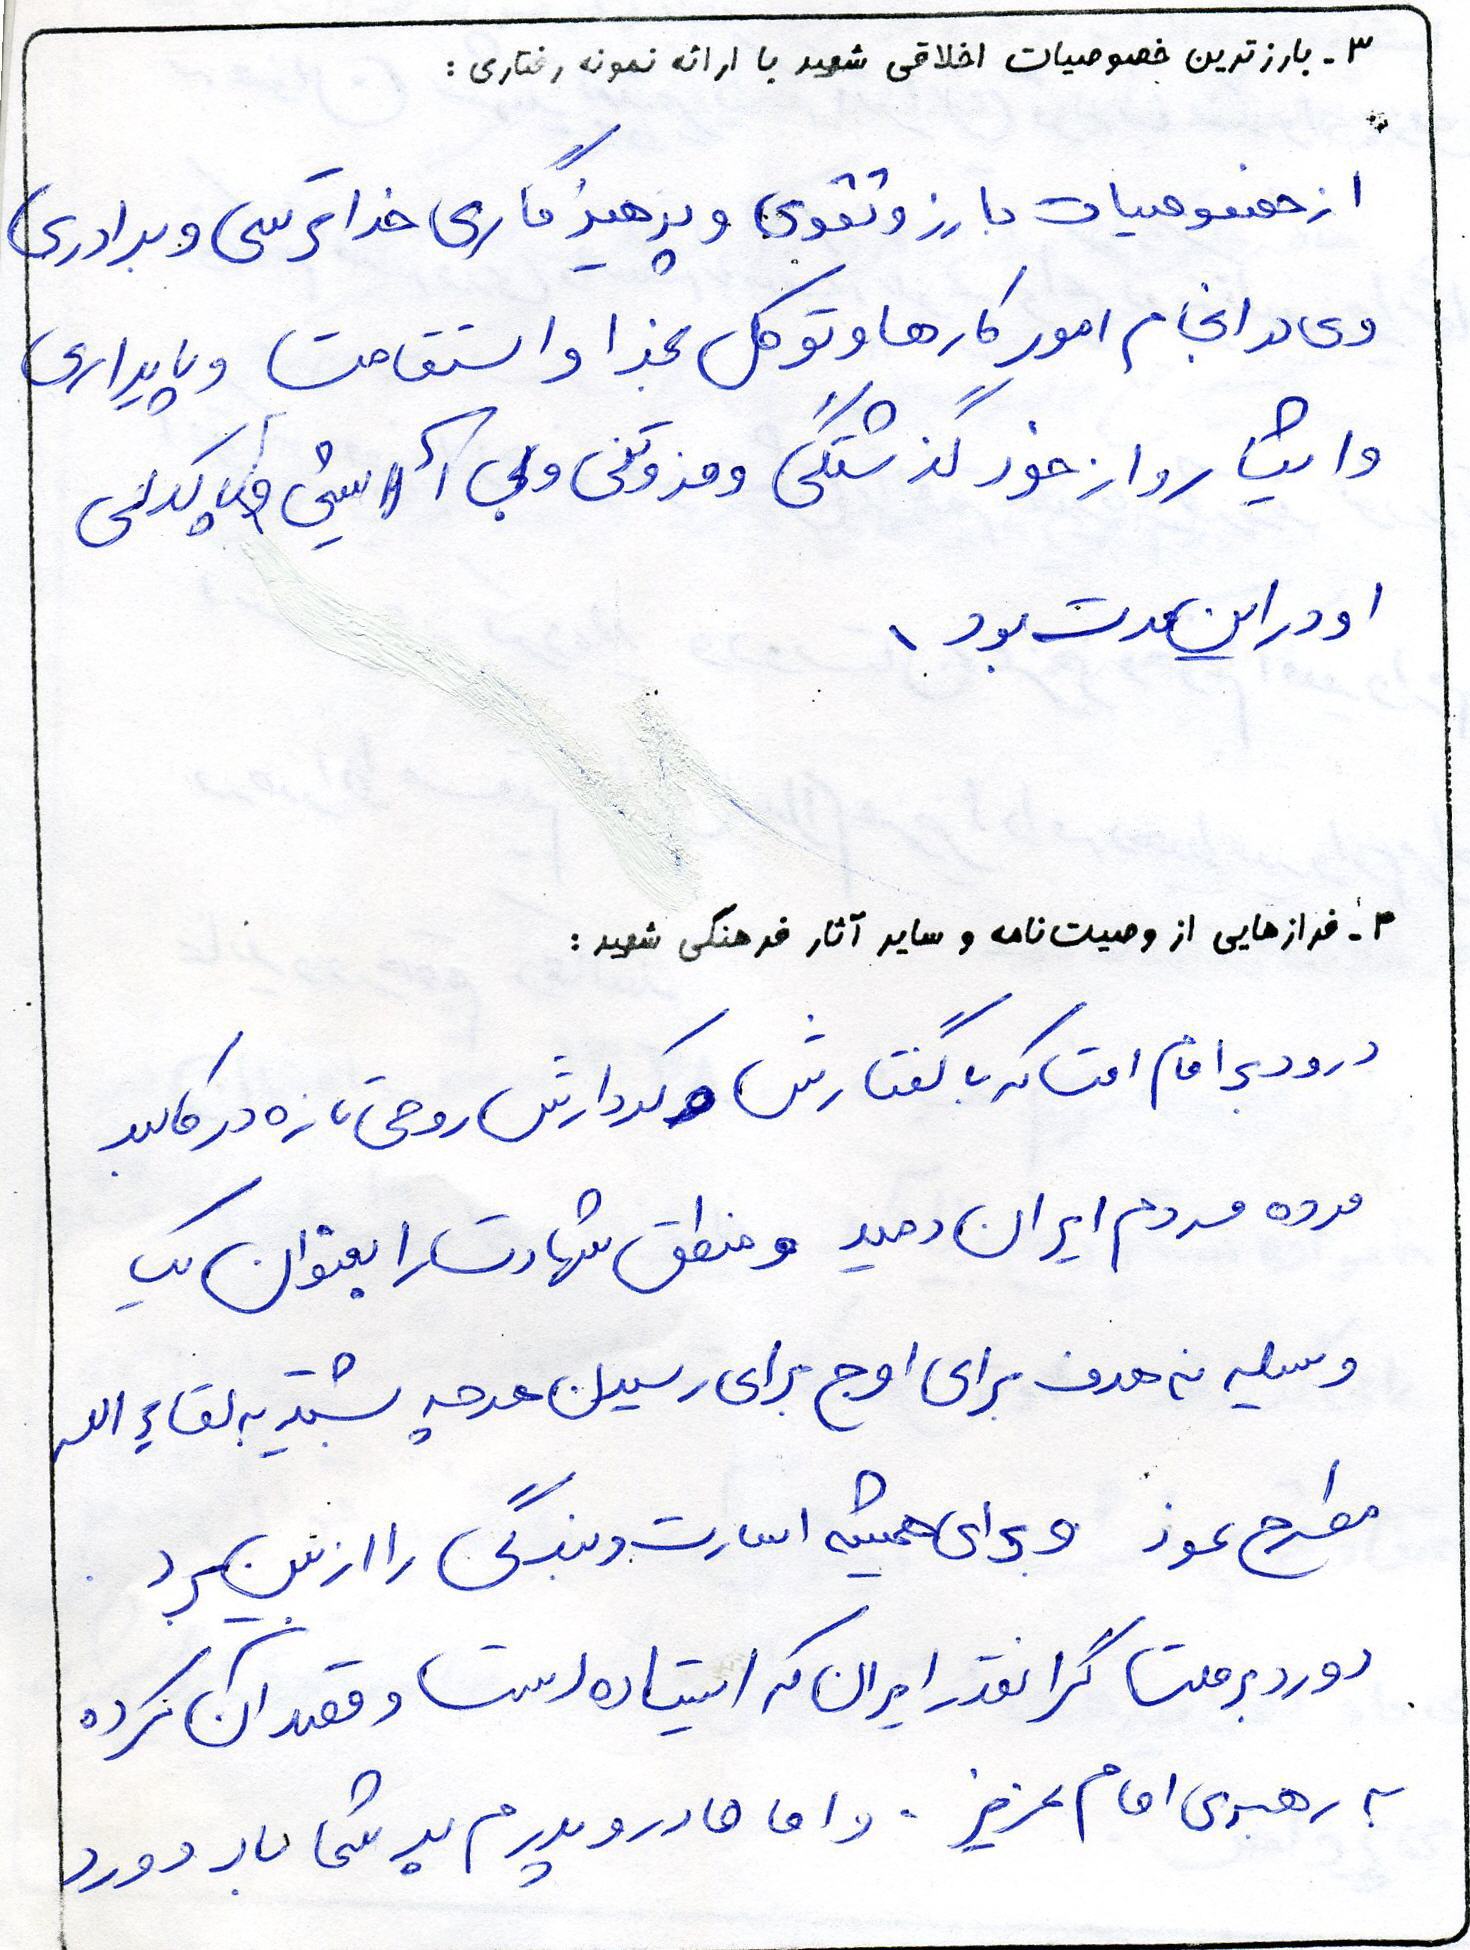 ۳ـ بارزترین خصوصیات اخلاقی شهید با ارائه نمونه رفتاری :
از خصوصیات بارز و تقوی و پرهیزگاری خداترسی و برادری
وی در انجام امور کارها و توکل بخدا و استقامت و پایداری
و ایثار و از خود گذشتگی و فروتنی و بی آلایشی و پاکدلی
او در این مدت بود .
۴ـ فرازهایی از وصیت‌نامه و سایر آثار فرهنگی شهید :
درود بر امام امت که با گفتارش و کردارش روحی تازه در کالبد
مرده مردم ایران دمید و منطق شهادت را بعنوان یک
وسیله نه هدف برای اوج برای رسیدن هرچه بیشتر به لقاء الله
مطرح نمود و برای همیشه اسارت و بندگی را از بین برد
دورد بر ملت گرانقدر ایران که ایستاده است و قصد آن کرده
به رهبری امام عزیز . و اما مادر و پدرم بر شما باد دورد